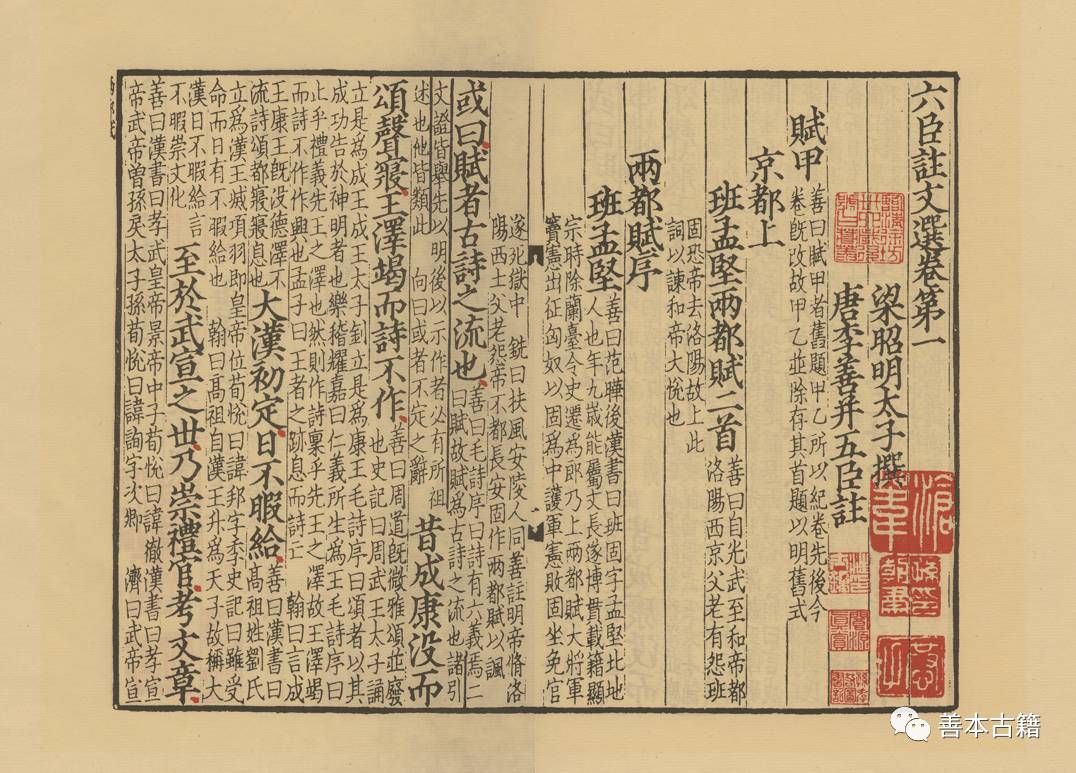 六臣註文選卷第一
梁昭明太子撰
唐李善并五臣註
賦甲
善曰賦甲者舊題甲乙所以紀卷先後今
卷旣改故甲乙並除存其首題以明舊式
京都上
班孟堅兩都賦二首
善曰自光武至和帝都
洛陽西京父老有怨班
固恐帝去洛陽故上此
詞以諫和帝大悅也
兩都賦序
班孟堅
善曰范曄後漢書曰班固字孟堅北地
人也年九歲能屬文長遂博貫載籍顯
宗時除蘭臺令史遷爲郎乃上兩都賦大將軍
竇憲出征匈奴以固爲中護軍憲敗固坐免官
遂死獄中 銑曰扶風安陵人同善註明帝脩洛
陽西土父老怨帝不都長安固作兩都賦以諷
或曰賦者古詩之流也
善曰毛詩序曰詩有六義焉二
曰賦故賦爲古詩之流也諸引
文證皆舉先以明後以示作者必有所祖
述也他皆類此 向曰或者不定之辭
昔成康没而
頌聲寢王澤竭而詩不作
善曰周道旣微雅頌並廢
也史記曰周武王太子誦
立是爲成王成王太子釗立是爲康王毛詩序曰頌者以其
成功告於神明者也樂稽耀嘉曰仁義所生爲王毛詩序曰
止乎禮義先王之澤也然則作詩稟乎先王之澤故王澤竭
而詩不作作興也孟子曰王者之跡息而詩亡 翰曰言成
王康王旣没德澤不
流詩頌都寢寢息也
大漢初定日不暇給
善曰漢書曰
高祖姓劉氏
立爲漢王滅項羽即皇帝位荀悅曰諱邦字季史記曰雖受
命而日有不暇給也 翰曰高祖自漢王升爲天子故稱大
漢日不暇給言
不暇崇文化
至於武宣之世乃崇禮官考文章
善曰漢書曰孝武皇帝景帝中子荀悅曰諱徹漢書曰孝宣
帝武帝曾孫戾太子孫荀悅曰諱詢字次卿 濟曰武帝宣
善本古籍